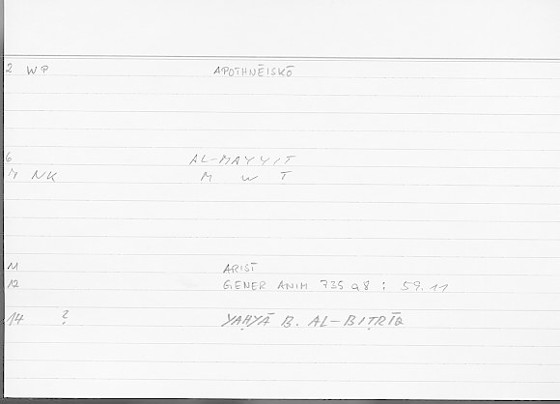 2 WP APOTHNĒISKŌ
6 AL-MAYYIT
7 NK M W T
11 ARIST
12 GENER ANIM 735 a8 : 59.11
14 ? YAḤYĀ B. AL-BIṬRĪQ